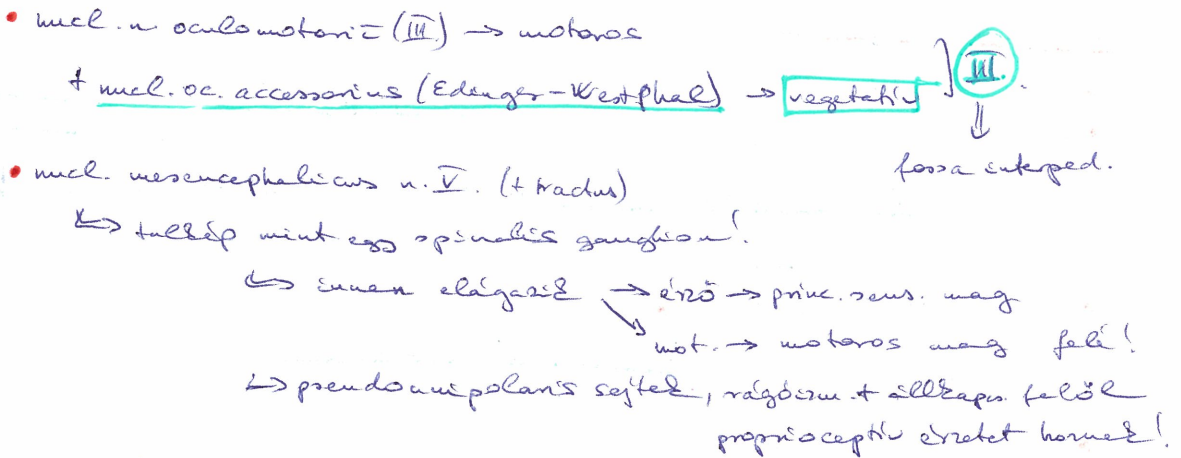 • nucl. n oculomotorii (III) → motoros
+ nucl. oc. accessorius (Edinger-Westphal) → vegetatív ] III.
⇓
fossa interped.
• nucl. mesencephalicus n. V. (+ tractus)
↳ tulkép mint egy spinalis ganglion!
↳ innen elágazik → érző → princ. sens. mag
↘ mot. → motoros mag felé!
↳ pseudounipolaris sejtek, rágóizm. + állkapcs. felől
proprioceptív érzetet hoznak!